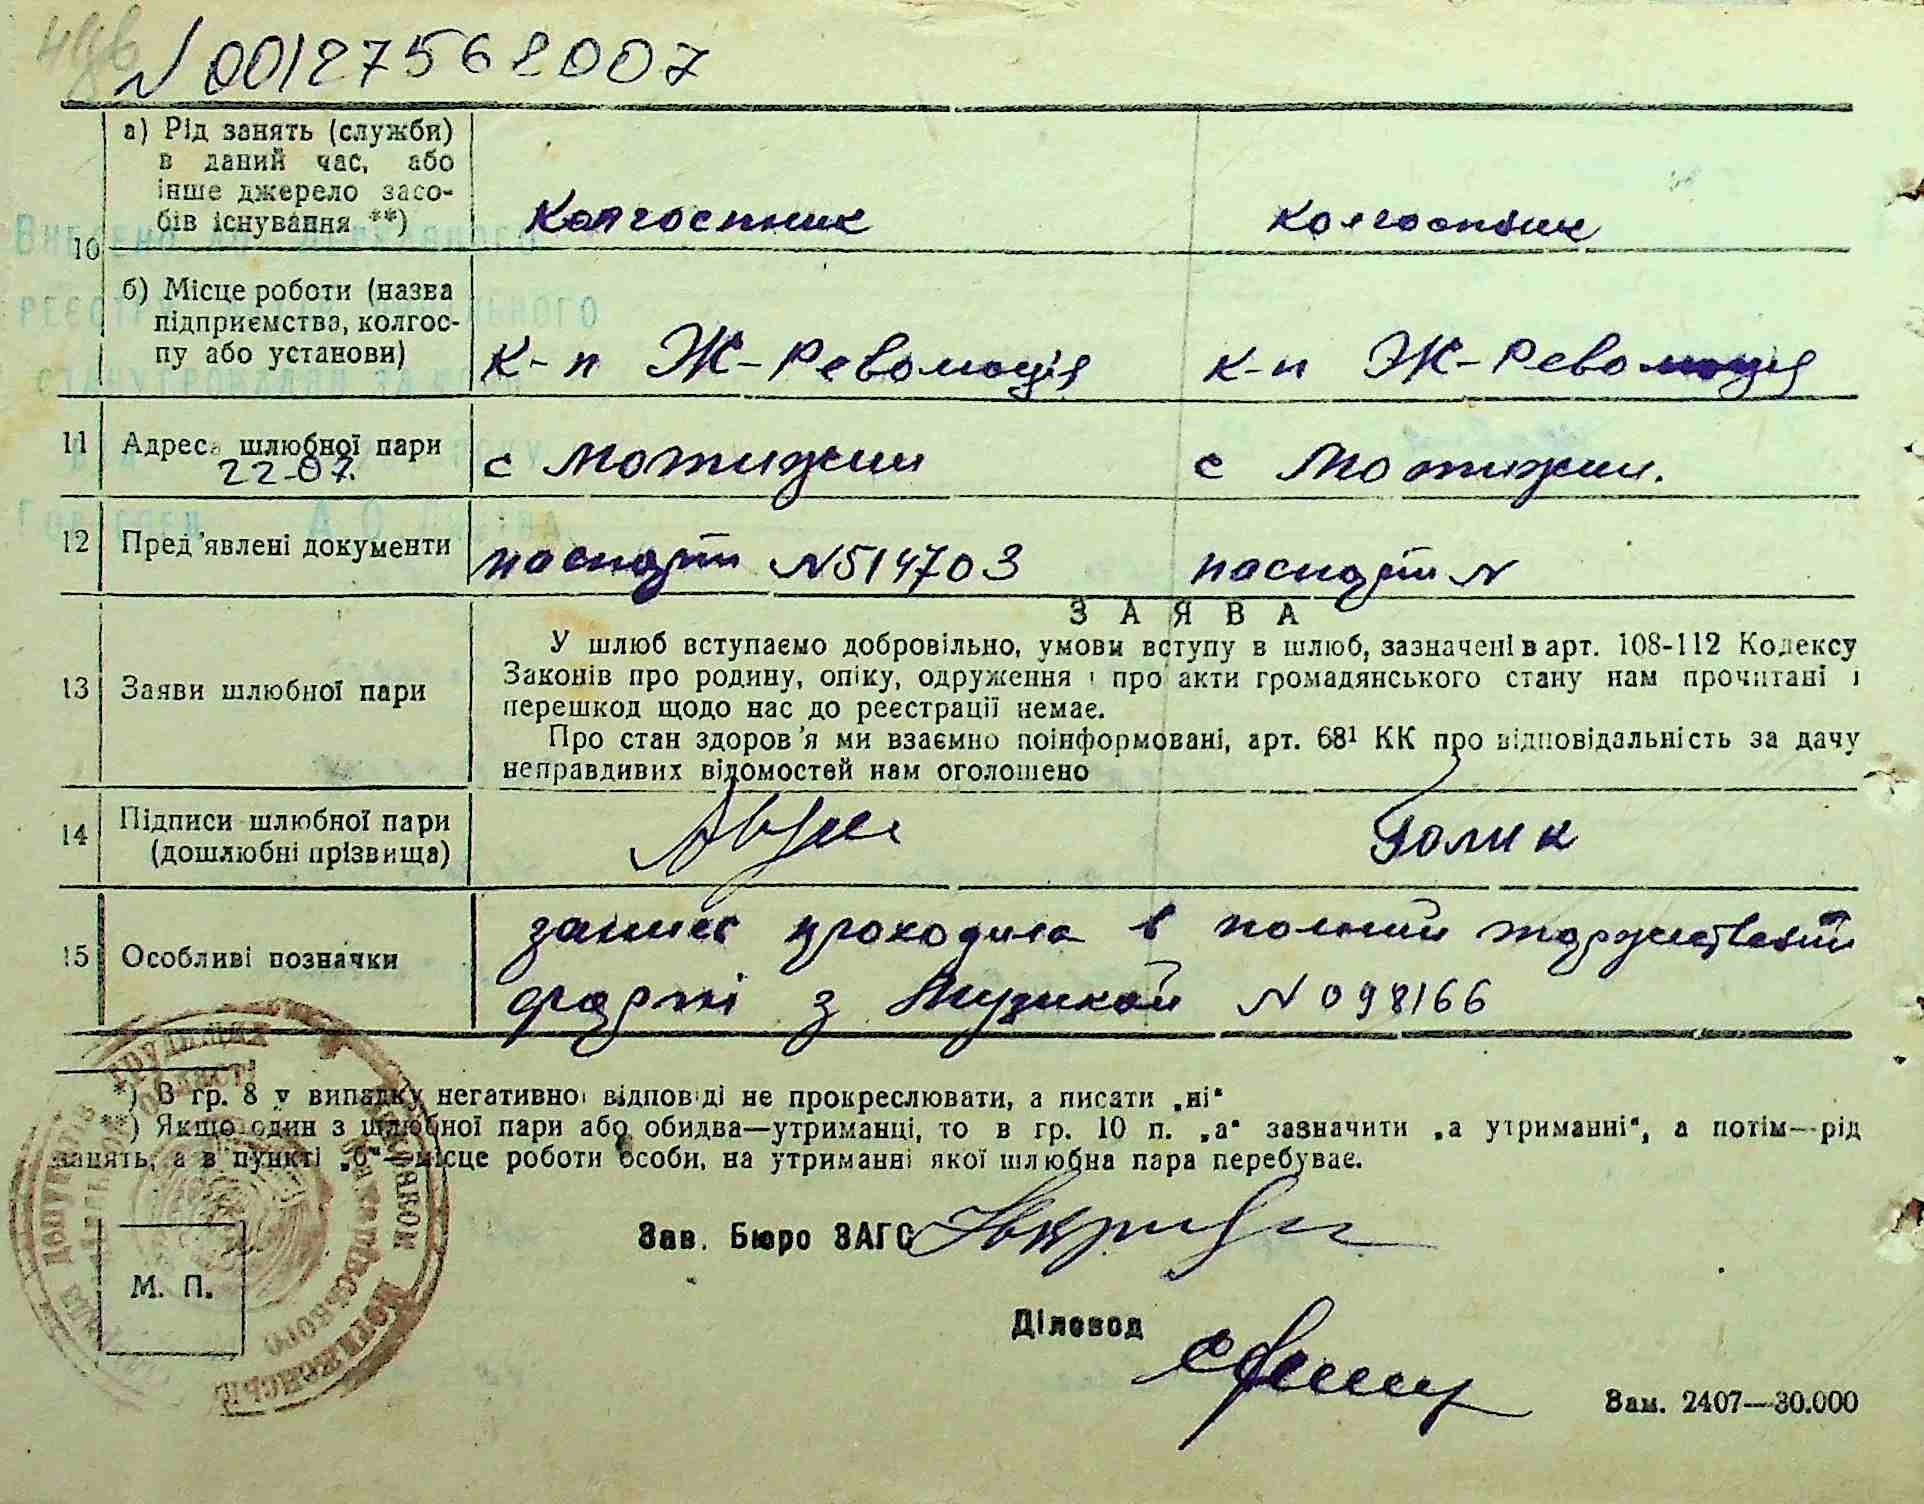 N 00127562007
а) Рід занять (служби) в даний час, або інше джерело засо- бів існування **)
Колгоспник колгоспник
10
б) Місце роботи (назва підприємства, колгос- пу або установи)
К-п Ж-Революція к-п Ж-Революція
11 Адреса шлюбної пари с Мотижин с Мотижин.
22-07.
12 Пред'явлені документи паспорт N514703 паспорт N
ЗАЯВА
У шлюб вступаємо добровільно, умови вступу в шлюб, зазначені в арт. 108-112 Кодексу
Законів про родину, опіку, одруження і про акти громадянського стану нам прочитані і
13 Заяви шлюбної пари
перешкод щодо нас до реєстрації немає.
Про стан здоров'я ми взаємно поінформовані, арт. 68¹ КК про відповідальність за дачу
неправдивих відомостей нам оголошено
14 Підписи шлюбної пари (дошлюбні прізвища) Голик
запис проходила в полний торжественій
15 Особливі позначки
формі з музикой N 098166
*) В гр. 8 у випадку негативної відповіді не прокреслювати, а писати „ні“
**) Якщо один з шлюбної пари або обидва—утриманці, то в гр. 10 п. „а“ зазначити „а утриманні“, а потім—рід
занять, а в пункті „б“—місце роботи особи, на утриманні якої шлюбна пара перебуває.
Зав. Бюро ЗАГС
М. П.
Діловод
Зам. 2407—30.000